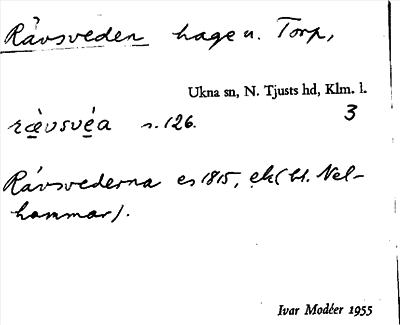 Rävsveden hage u. Torp,
Ukna sn, N. Tjusts hd, Klm. l.
3
ræ̀vsvẹa s. 126.
Rävsvederna es 1815, ek (bl. Nel-
hammar).
Ivar Modéer 1955